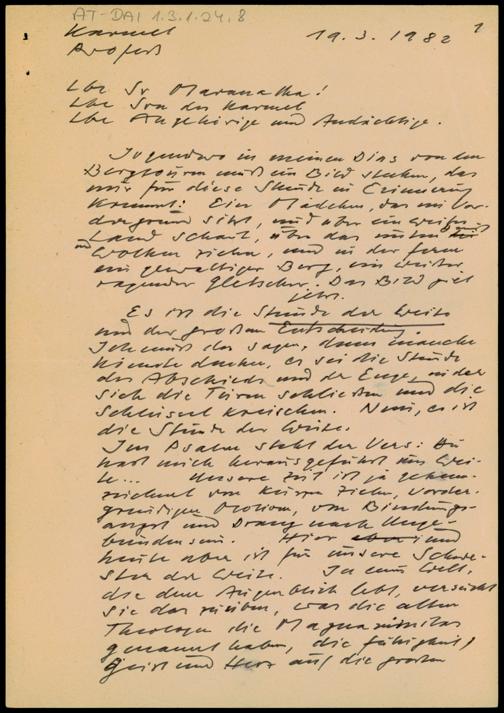 AT-DAI 1.3.1.24.8
Karmel 19.3.1982 1
Profeß
Lbe Sr Maranatha!
Lbe Srn des Karmel
Lbe Angehörige und Andächtige.
Irgendwo in meinen Dias von den
Bergtouren muß ein Bild stecken, das
mir für diese Stunde in Erinnerung
kommt: Ein Mädchen, das im Vor-
dergrund sitzt, und über ein weites
Land schaut, über das unten
Wolken ziehen, und in der Ferne
ein gewaltiger Berg, ein weiter
ragender Gletscher. Das Bild
jetzt.
Es ist die Stunde der Weite
und der großen Entscheidung.
Ich muß das sagen, denn manche
könnte denken, es sei die Stunde
des Abschieds und der Enge, in der
sich die Türen schließen und die
Schlüssel kreischen. Nein, es ist
die Stunde der Weite.
Im Psalm steht der Vers: Du
hast mich herausgeführt ins Wei-
te... Unsere Zeit ist ja gekenn-
zeichnet von kurzen Zielen, vorder-
gründigen Motiven, von Bindungs-
angst und Drang nach Unge-
bundensein. Hier und
heute aber ist für unsere Schwe-
ster der Weite. In einer Welt,
die dem Augenblick lebt, versucht
sie das zu üben, was die alten
Theologen die Magnanimitas
genannt haben, die Fähigkeit,
Geist und Herz auf die großen